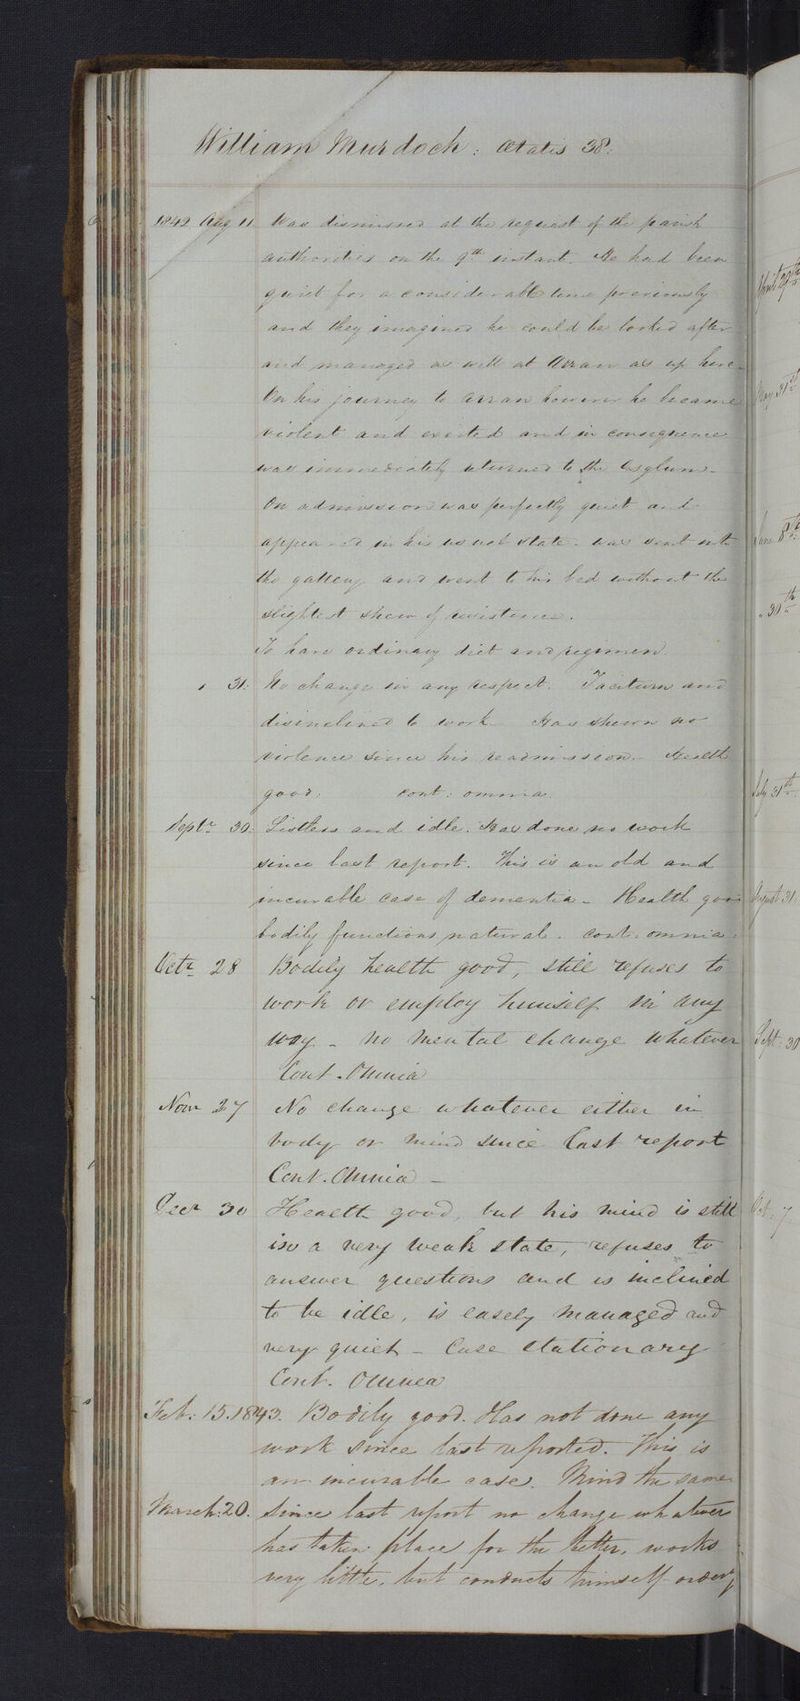 William Murdoch: Ætatis 38:
1842 Aug 11 Was dismissed at the request of the parish
authorities on the 9th instant. He had been
quiet for a considerable time previously
and they imagined he could be looked after
and managed as well at Arran as up here.
On his journey to Arran however he became
violent and excited and in consequence
was immediately returned to the Asylum.
On admission was perfectly quiet and
appeared in his usual state. was sent into
the gallery and went to his bed without the
slightest shew of resistance.
To have ordinary diet and regimen.
" 31. No change in any respect. Taciturn and
disinclined to work. Has shewn no
violence since his readmission. Health
good. cont: omnia
Septr 30. Listless and idle. Has done no work
since last report. This is an old and
incurable case of dementia - Health good
bodily functions natural. cont. omnia.
Octr 28 Bodily health good, still refuses to
work or employ himself in any
way - no mental change whatever
Cont. Omnia
Novr 27 No change whatever either in
body or mind since last report
Cont. Omnia -
Decr 30 Health good, but his mind is still
in a very weak state, refuses to
answer questions and is inclined
to be idle, is easely managed and
very quiet - Case stationary
Cont. Omnia
Feb. 15. 1843. Bodily good. Has not done any
work since last reported. This is
an incurable case. Mind the same
March 20. Since last report no change whatever
has taken place for the better, works
very little, but conducts himself orderly
April 29th
May 31st
June 8th
" 30th
July 31st
August 31
Sept. 30
Oct. 7